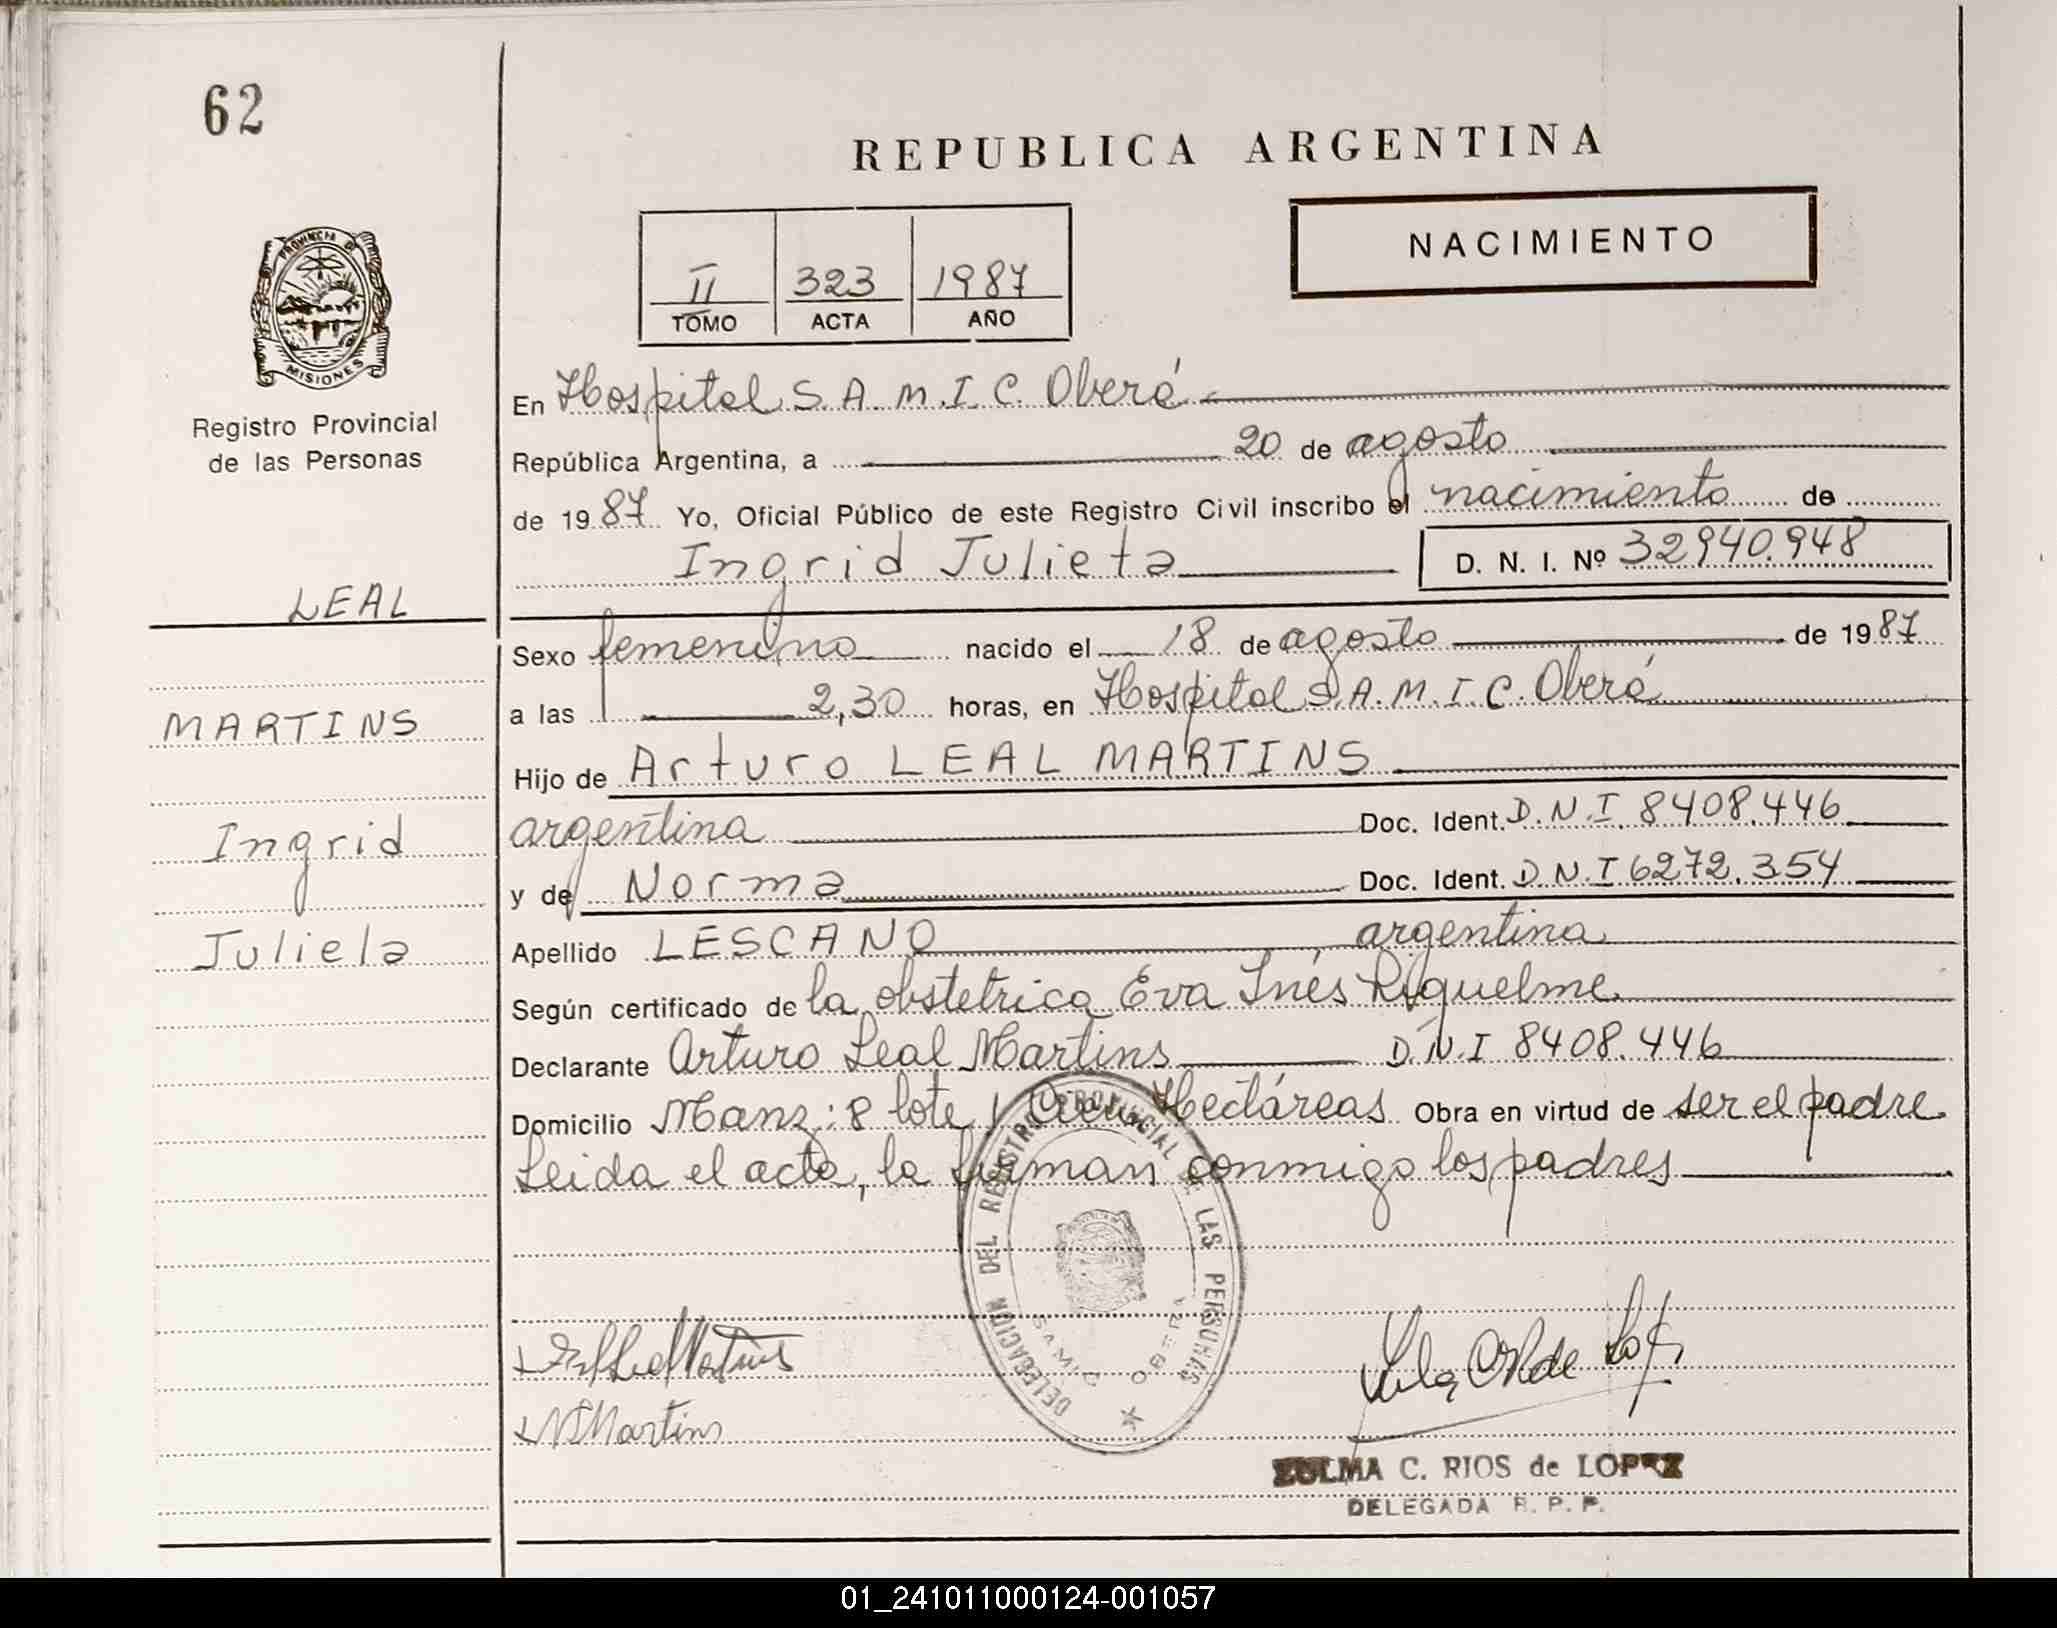 62
REPUBLICA ARGENTINA
NACIMIENTO
II 323 1987
TOMO ACTA AÑO
PROVINCIA DE
MISIONES
Registro Provincial
de las Personas
En Hospital S.A.M.I.C. Oberá
República Argentina, a 20 de agosto
de 1987 Yo, Oficial Público de este Registro Civil inscribo el nacimiento de
Ingrid Julieta D. N. I. Nº 32940.948
LEAL
MARTINS
Ingrid
Julieta
Sexo femenino nacido el 18 de agosto de 1987
a las 2,30 horas, en Hospital S.A.M.I.C. Oberá
Hijo de Arturo LEAL MARTINS
argentina Doc. Ident. D.N.I. 8408.446
y de Norma Doc. Ident. D.N.I 6272.354
Apellido LESCANO argentina
Según certificado de la obstetrica Eva Inés Riquelme
Declarante Arturo Leal Martins D.N.I 8408.446
Domicilio Manz: 8 lote 1 Cien Hectáreas Obra en virtud de ser el padre
Leida el acta, la firman conmigo los padres
DELEGACION DEL REGISTRO PROVINCIAL DE LAS PERSONAS
SAMIC OBERA
Martins
ZULMA C. RIOS de LOPEZ
DELEGADA R. P. P.
01_241011000124-001057